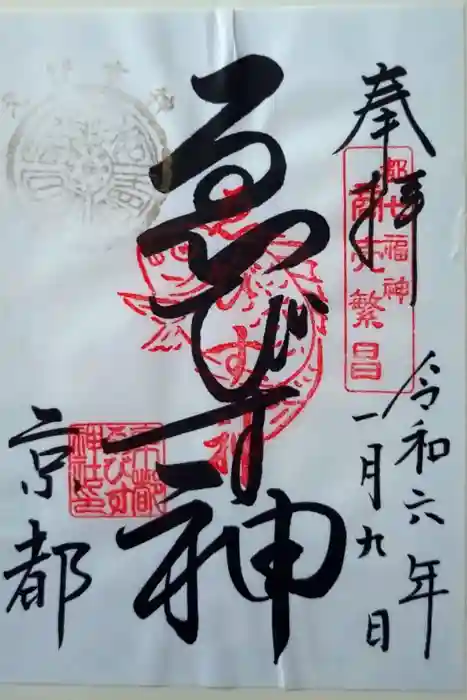 奉拝
都七福神
商売繁昌
令和六年
一月九日
ゑびす神
京都
ゑびす神
京都ゑびす神社印